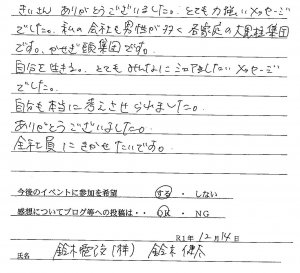 きぃさん ありがとうございました。とても力強いメッセージ
でした。私の会社も男性が多く各家庭の大黒柱集団
です。かせぎ頭集団です。
自分を生きる。とてもみんなにシェアをしたいメッセージ
でした。
自分も本当に考えさせられました。
ありがとうございました。
全社員にきかせたいです。
今後のイベントに参加を希望 する・しない
感想についてブログ等への投稿は・・ OK ・ NG
R1年 12月 14日
氏名 鈴木電設(株) 鈴木健太